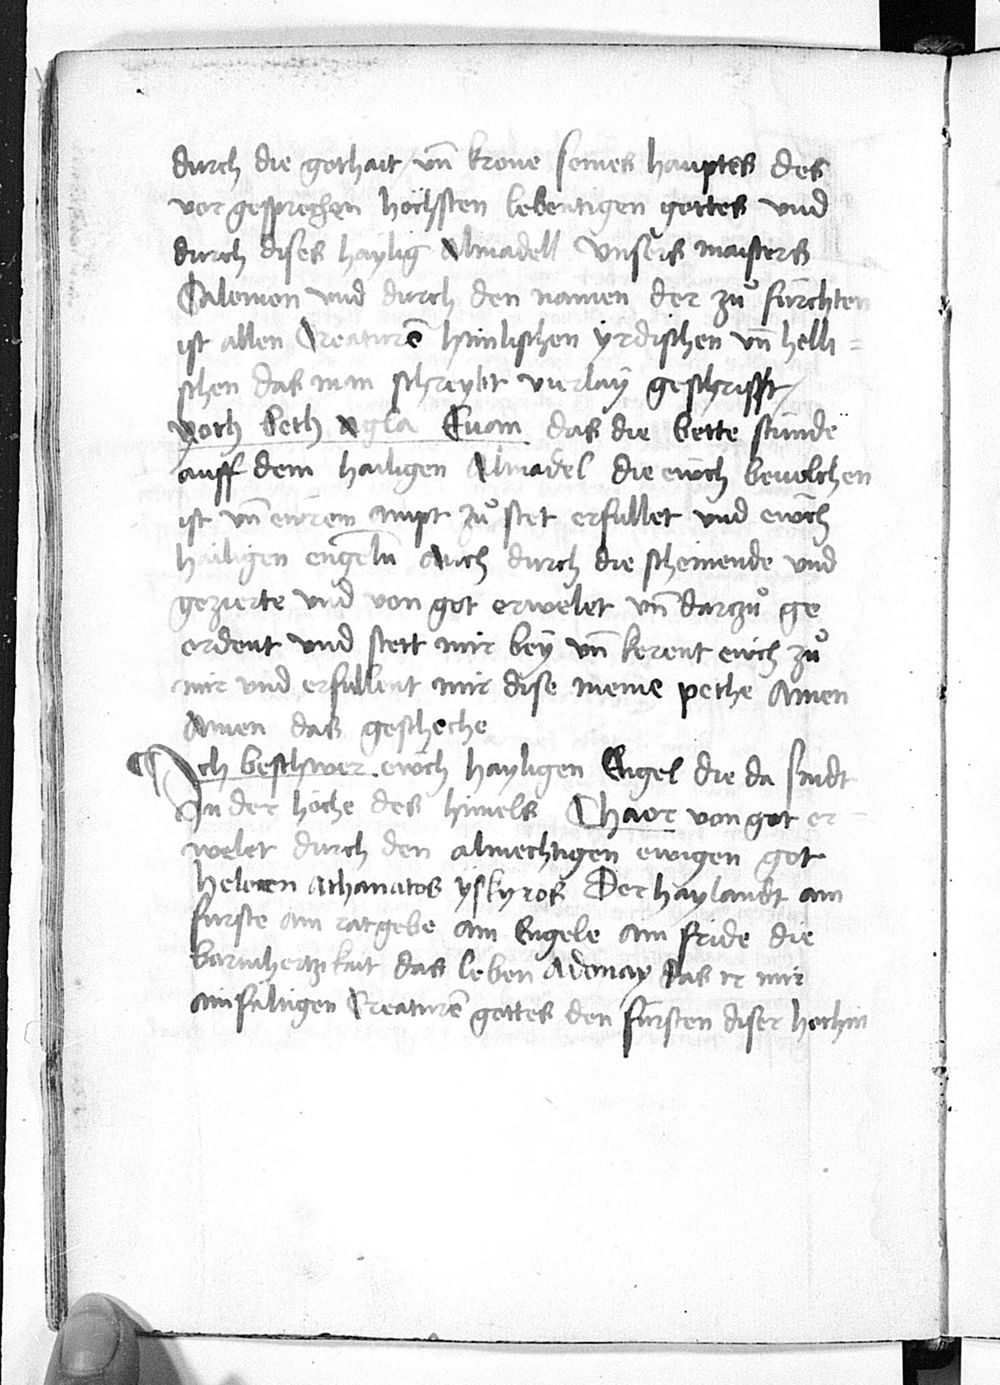 durch die gothait / vn̄ krone seines hauptes des
vor gesprechen höchsten lebentigen gottes vnd
durch dises haylig Almadell vnsers maisters
Salomon vnd durch den namen der zů fürchten
ist allen Creaturē himlischen yrdischen vn̄ helli =
schen das man schreybt vierlay geschrifft /
yoth heth agla Euan das die bette stünde
auff dem hailigen Almadel die ewch beuolchen
ist vn̄ ewrem ampt zů stet erfullet vnd ewch
hailigen engeln auch durch die scheinende vnd
gezierte vnd von got erwelet vn̄ darzů ge
ordent vnd stett mir bey vn̄ kerent ewch zů
mir vnd erfullent mir dise meine pethe Amen
Amen das gescheche
Ich beschwer ewch hayligen Engel die da sindt
In der höche des himels Chaor von got er
welet durch den almechtigen ewigen got
heleren Athanatos yskyros Der haylandt am
furste ain ratgebe ain Engele ain fride die
barmhertzikait das leben Adonay das ir mir
ainfaltigen Creaturē gottes den fürsten diser hochin